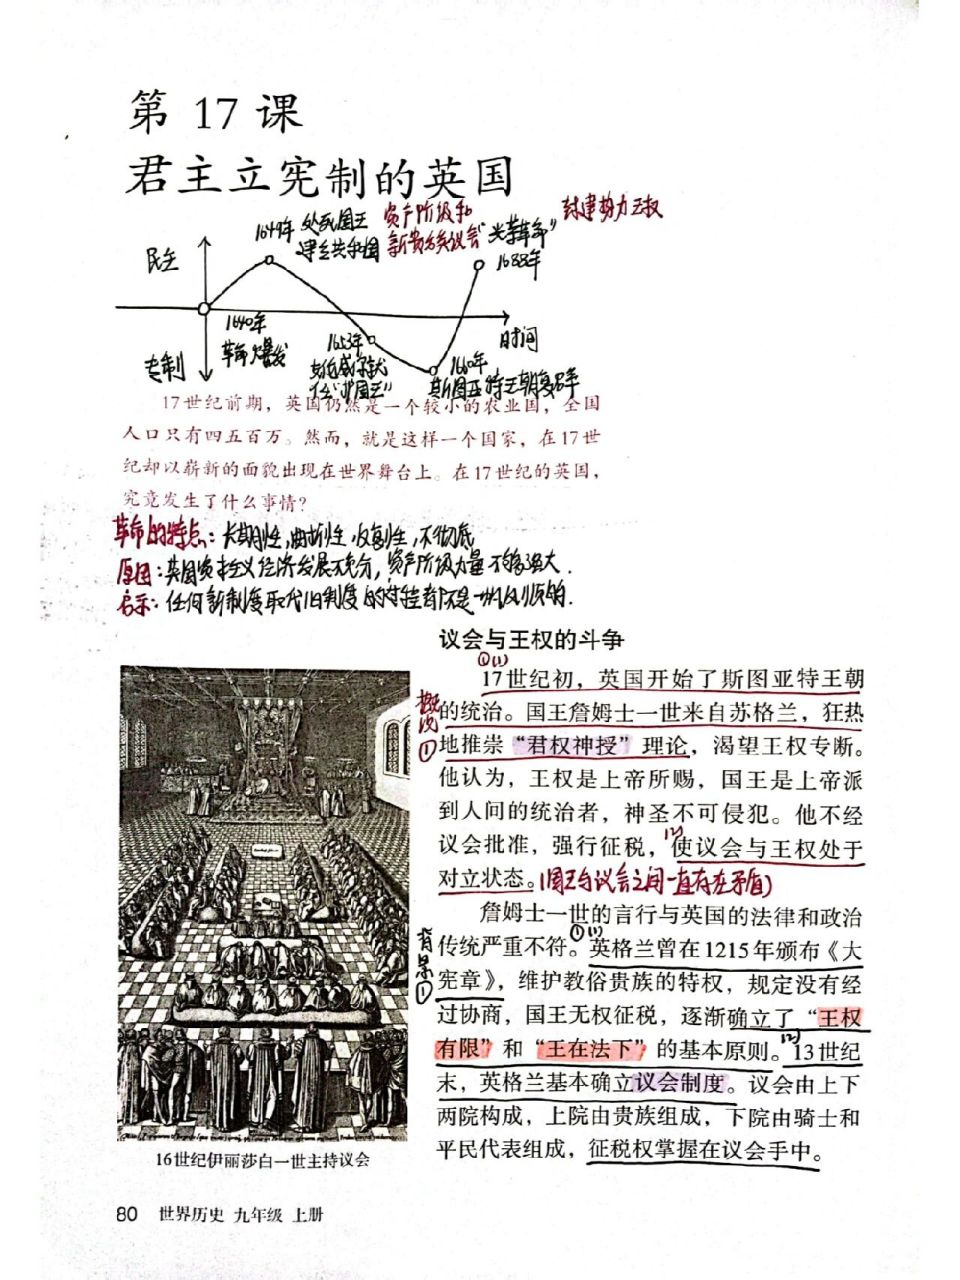 第 17 课
君主立宪制的英国
1649年 处死国王
建立共和国
资产阶级和
新贵族议会
封建势力王权
“光荣革命”
1688年
民主
专制
1640年
革命爆发
1653年
任“护国王”
1660年
斯图亚特王朝复辟
时间
17世纪前期，英国仍然是一个较小的农业国，全国
人口只有四五百万。然而，就是这样一个国家，在17世
纪却以崭新的面貌出现在世界舞台上。在17世纪的英国，
究竟发生了什么事情？
革命的特点：长期性，曲折性，反复性，不彻底
原因：英国资本主义经济发展不充分，资产阶级力量不够强大.
启示：任何新制度取代旧制度的过程都不是一帆风顺的.
议会与王权的斗争
①(1)
17世纪初，英国开始了斯图亚特王朝
的统治。国王詹姆士一世来自苏格兰，狂热
地推崇“君权神授”理论，渴望王权专断。
他认为，王权是上帝所赐，国王是上帝派
到人间的统治者，神圣不可侵犯。他不经
议会批准，强行征税，(2)使议会与王权处于
对立状态。(国王与议会之间一直存在矛盾)
①
詹姆士一世的言行与英国的法律和政治
传统严重不符。①(1)英格兰曾在1215年颁布《大
宪章》，维护教俗贵族的特权，规定没有经
过协商，国王无权征税，逐渐确立了“王权
有限”和“王在法下”的基本原则。(2)13世纪
末，英格兰基本确立议会制度。议会由上下
两院构成，上院由贵族组成，下院由骑士和
平民代表组成，征税权掌握在议会手中。
背景①
16世纪伊丽莎白一世主持议会
80 世界历史 九年级 上册